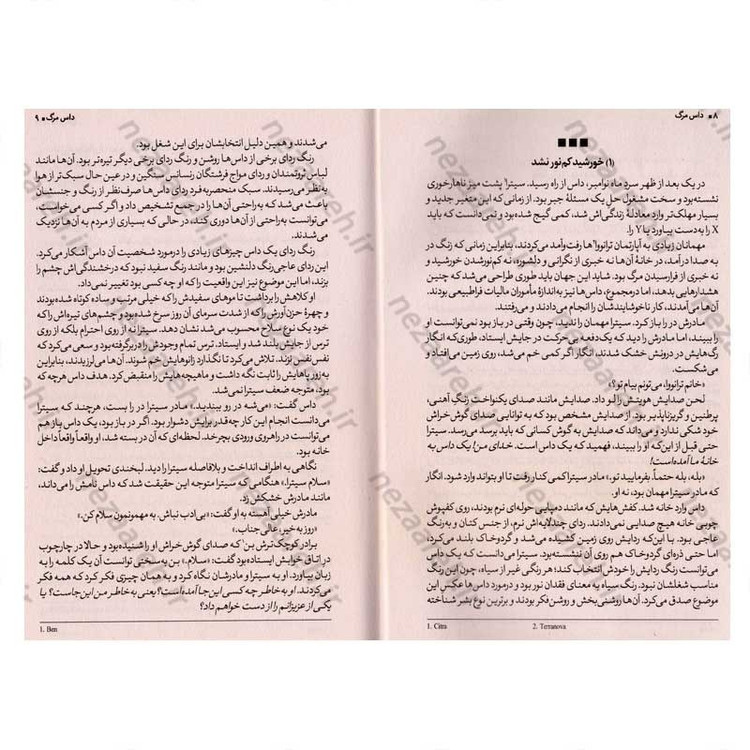 ۸ ■ داس مرگ
■■■
(۱) خورشید کم‌نور نشد
در یک بعد از ظهر سرد ماه نوامبر، داس از راه رسید. سیترا۱ پشت میز ناهارخوری
نشسته بود و سخت مشغول حل یک مسئلهٔ جبر بود. از زمانی که این متغیر جدید و
بسیار مهلک‌تر وارد معادلهٔ زندگی‌اش شد، کمی گیج شده بود و نمی‌دانست که باید
X را به‌دست بیاورد یا Y را.
مهمانان زیادی به آپارتمان ترانوواها رفت‌وآمد می‌کردند، بنابراین زمانی که زنگ در
به صدا درآمد، در خانهٔ آن‌ها نه خبری از نگرانی و دلشوره، نه کم‌نورشدن خورشید و
نه خبری از فرارسیدن مرگ بود. شاید این جهان باید طوری طراحی می‌شد که چنین
هشدارهایی بدهد، اما درمجموع، داس‌ها نیز به‌اندازهٔ مأموران مالیات فراطبیعی بودند.
آن‌ها می‌آمدند، کار ناخوشایندشان را انجام می‌دادند و می‌رفتند.
مادرش در را باز کرد. سیترا مهمان را ندید، چون وقتی در باز بود نمی‌توانست او
را ببیند، اما مادرش را دید که یک‌دفعه بی‌حرکت در جایش ایستاد، طوری‌که انگار
رگ‌هایش در درونش خشک شدند، انگار اگر کمی خم می‌شد، روی زمین می‌افتاد و
می‌شکست.
«خانم ترانووا، می‌تونم بیام تو؟»
لحن صدایش هویتش را لو داد. صدایش مانند صدای یکنواخت زنگ آهنی،
پرطنین و گریزناپذیر بود. از صدایش مشخص بود که به توانایی صدای گوش‌خراش
خود شکی ندارد و می‌داند که صدایش به گوش کسانی که باید برسد، می‌رسد. سیترا
حتی قبل از این‌که او را ببیند، فهمید که یک داس است. خدای من! یک داس به
خانهٔ ما آمده است!
«بله، بله حتماً، بفرمایید تو.» مادر سیترا کمی کنار رفت تا او بتواند وارد شود. انگار
که مادر سیترا مهمان بود، نه او.
داس وارد خانه شد. کفش‌هایش که مانند دمپایی حوله‌ای نرم بودند، روی کفپوش
چوبی خانه هیچ صدایی نمی‌دادند. ردای چندلایه‌اش نرم، از جنس کتان و به‌رنگ
عاجی بود. با این‌که ردایش روی زمین کشیده می‌شد و گردوخاک بلند می‌کرد،
اما حتی ذره‌ای گردوخاک هم روی آن ننشسته بود. سیترا می‌دانست که یک داس
می‌توانست رنگ ردایش را خودش انتخاب کند؛ هر رنگی غیر از سیاه، چون این رنگ
مناسب شغلشان نبود. رنگ سیاه به معنای فقدان نور بود و درمورد داس‌ها عکس این
موضوع صدق می‌کرد. آن‌ها روشنی‌بخش و روشن‌فکر بودند و برترین نوع بشر شناخته
1. Citra
2. Terranova
داس مرگ ■ ۹
می‌شدند و همین دلیل انتخابشان برای این شغل بود.
رنگ ردای برخی از داس‌ها روشن و رنگ ردای برخی دیگر تیره‌تر بود. آن‌ها مانند
لباس ثروتمندان و ردای مواج فرشتگان رنسانس سنگین و در عین حال سبک‌تر از هوا
به نظر می‌رسیدند. سبک منحصربه‌فرد ردای داس‌ها صرف‌نظر از رنگ و جنسشان
باعث می‌شد که به‌راحتی آن‌ها را در جمع تشخیص داد و اگر کسی می‌خواست،
می‌توانست به‌راحتی از آن‌ها دوری کند، در حالی که بسیاری از مردم به آن‌ها نزدیک
می‌شدند.
رنگ ردای یک داس چیزهای زیادی را درمورد شخصیت آن داس آشکار می‌کرد.
این ردای عاجی‌رنگ دلنشین بود و مانند رنگ سفید نبود که درخشندگی‌اش چشم را
بزند، اما این موضوع نیز این واقعیت را که او چه کسی بود تغییر نمی‌داد.
او کلاهش را برداشت تا موهای سفیدش را که خیلی مرتب و ساده کوتاه شده بودند
و چهرهٔ حزن‌آورش را که از شدت سرمای آن روز سرخ شده بود و چشم‌های تیره‌اش را که
خود یک نوع سلاح محسوب می‌شد نشان دهد. سیترا نه از روی احترام بلکه از روی
ترس از جایش بلند شد و ایستاد. ترس تمام وجودش را دربرگرفته بود و سعی می‌کرد که
نفس‌نفس نزند. تلاش می‌کرد تا نگذارد زانوهایش خم شوند. آن‌ها می‌لرزیدند، بنابراین
به زور پاهایش را ثابت نگه داشت و ماهیچه‌هایش را منقبض کرد. هدف داس هرچه که
بود، متوجه ضعف سیترا نمی‌شد.
داس گفت: «می‌شه در رو ببندید.» مادر سیترا در را بست، هرچند که سیترا
می‌دانست انجام این کار چه‌قدر برایش دشوار بود. اگر در باز بود، یک داس باز هم
می‌توانست در راهروی ورودی بچرخد. لحظه‌ای که آن در بسته شد، او واقعاً واقعاً داخل
خانه بود.
نگاهی به اطراف انداخت و بلافاصله سیترا را دید. لبخندی تحویل او داد و گفت:
«سلام سیترا.» هنگامی که سیترا متوجه این حقیقت شد که داس نامش را می‌داند،
مانند مادرش خشکش زد.
مادرش خیلی آهسته به او گفت: «بی‌ادب نباش. به مهمونمون سلام کن.»
«روز به خیر، عالی جناب.»
برادر کوچک‌ترش بن۱ که صدای گوش‌خراش او را شنیده بود و حالا در چارچوب
در اتاق خوابش ایستاده بود گفت: «سلام.» بن به‌سختی توانست آن یک کلمه را به
زبان بیاورد. او به سیترا و مادرشان نگاه کرد و به همان چیزی فکر کرد که همه فکر
می‌کردند. او به خاطر چه کسی این‌جا آمده است؟ یعنی به خاطر من این‌جاست؟ یا
یکی از عزیزانم را از دست خواهم داد؟
1. Ben
nezaareh.ir